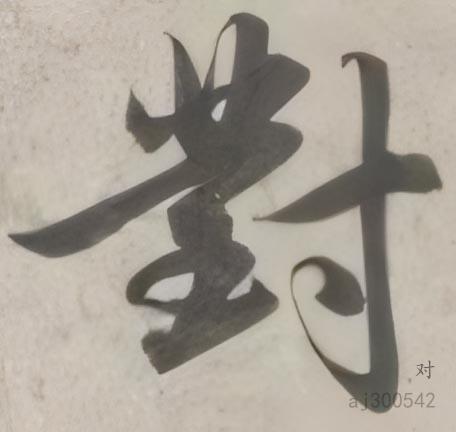 對
对
aj300542